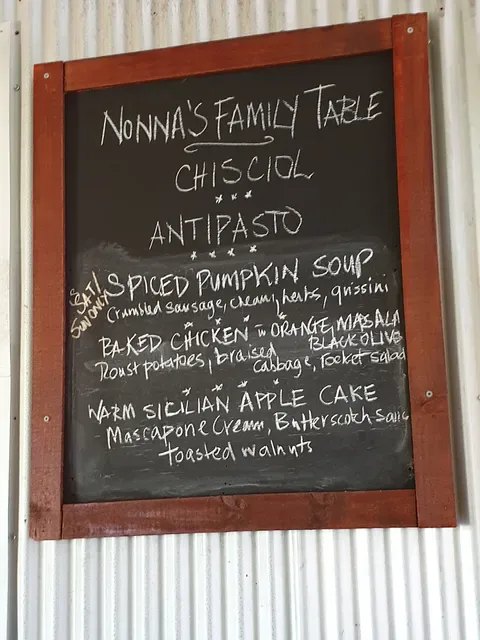 NONNA'S FAMILY TABLE
CHISCIOL
ANTIPASTO
SAT/
SUN ONLY
SPICED PUMPKIN SOUP
Crumbled sausage, cream, herbs, grissini
BAKED CHICKEN in ORANGE, MASALA
BLACK OLIVE
Roust potatoes, braised
Cabbage, rocket salad
WARM SICILIAN APPLE CAKE
Mascapone Cream, Butterscotch Sauce
toasted walnuts